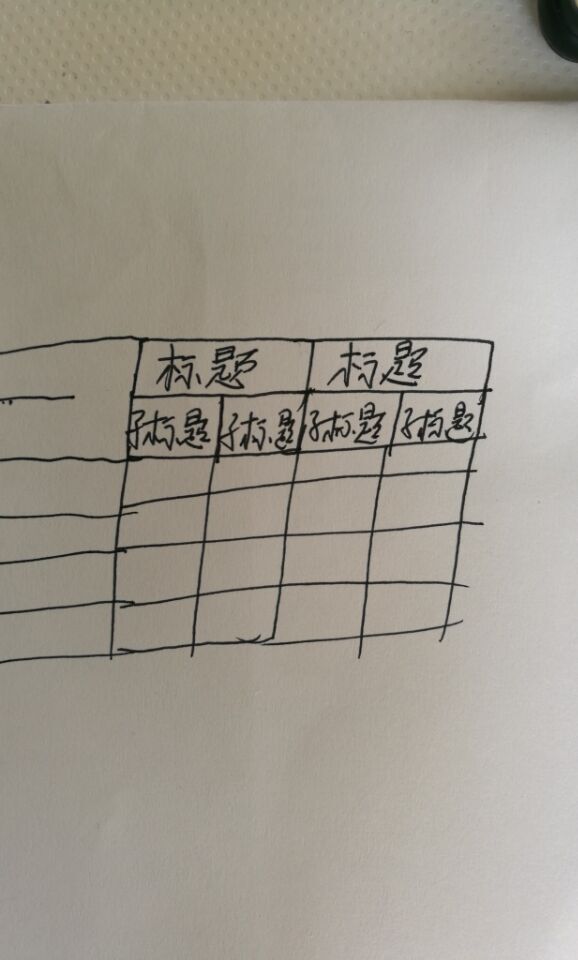 标题 标题
子标题 子标题 子标题 子标题